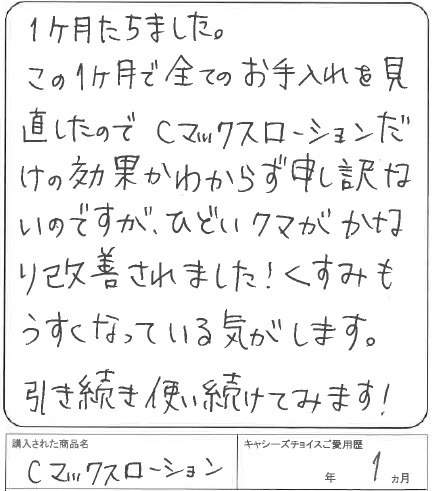 1ケ月たちました。
この1ケ月で全てのお手入れを見
直したのでCマックスローションだ
けの効果かわからず申し訳な
いのですが、ひどいクマがかな
り改善されました!くすみも
うすくなっている気がします。
引き続き使い続けてみます!
購入された商品名
Cマックスローション
キャシーズチョイスご愛用歴
年 1 ヵ月